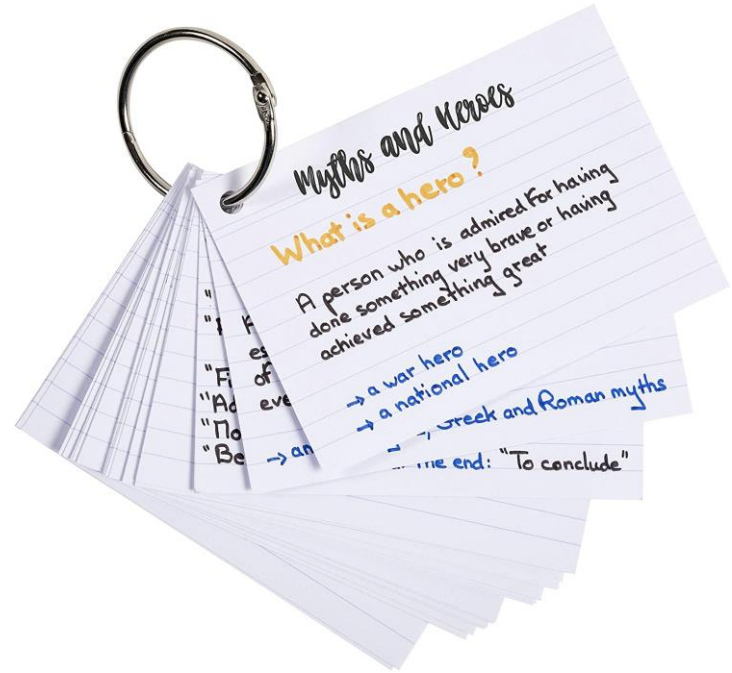 Myths and Heroes
What is a hero?
A person who is admired For having
done something very brave or having
achieved something great
→ a war hero
→ a national hero
es
of
eve
→ an
, Greek and Roman myths
"
"
"Fi
"Ad
"Mo
"Be
the end: "To conclude"